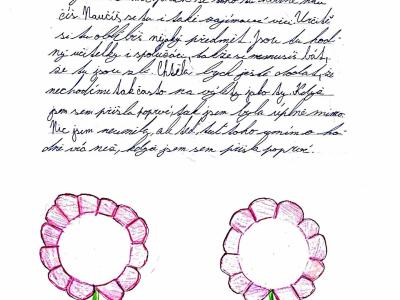 čís Naučíš se tu i také zajímavé věci. Určitě
si tu oblíbíš nějaký předmět. Jsou tu hod-
ný učitelky i spolužáci, takže se nemusíš bát,
že tu jsou zlí. Chtěla bych ještě dodat, že
nechodíme tak často na výlety jako ty. Když
jsem sem přišla poprvé, tak jsem byla úplně mimo.
Nic jsem neuměla, ale teď, tuť toho umím o ho-
dně víc než, když jsem sem přišla poprvé.